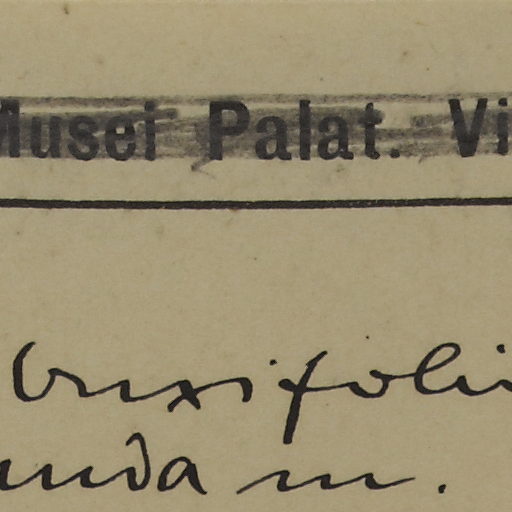 Musei Palat. Vi
buxifoli
unda m.